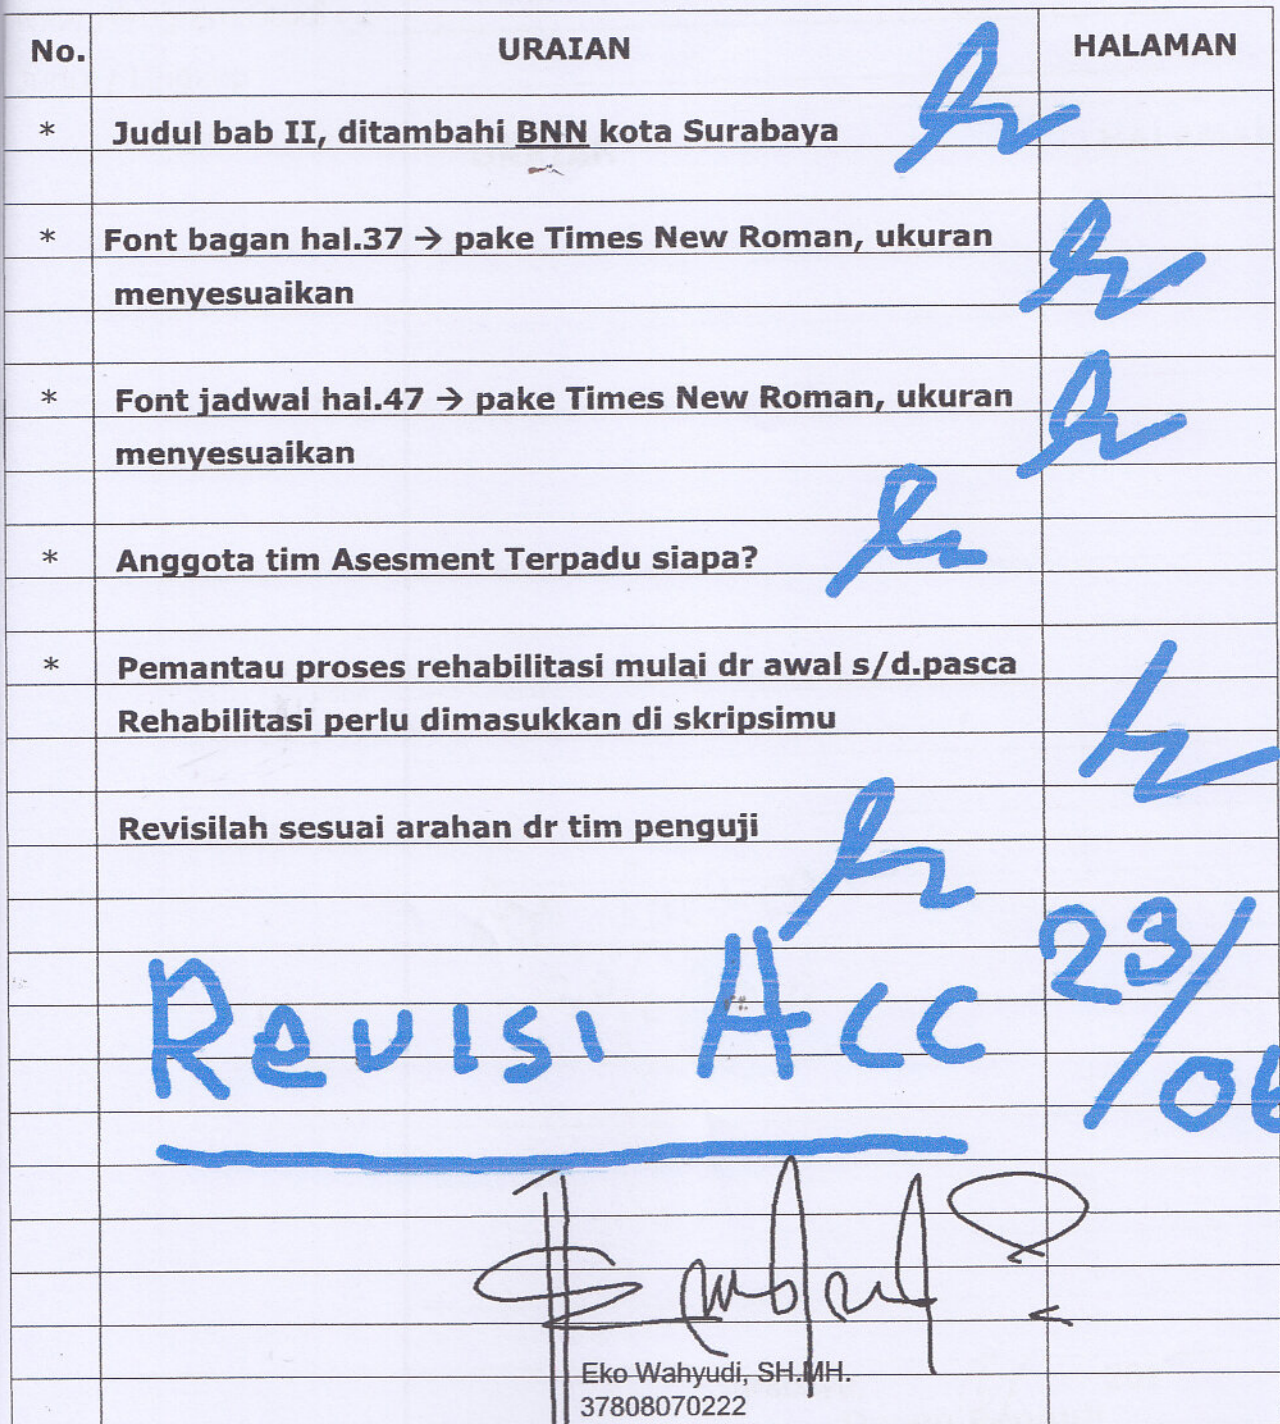 No. URAIAN HALAMAN
* Judul bab II, ditambahi BNN kota Surabaya
* Font bagan hal.37 → pake Times New Roman, ukuran
menyesuaikan
* Font jadwal hal.47 → pake Times New Roman, ukuran
menyesuaikan
* Anggota tim Asesment Terpadu siapa?
* Pemantau proses rehabilitasi mulai dr awal s/d.pasca
Rehabilitasi perlu dimasukkan di skripsimu
Revisilah sesuai arahan dr tim penguji
Revisi Acc 23/06
Eko Wahyudi, SH.MH.
37808070222